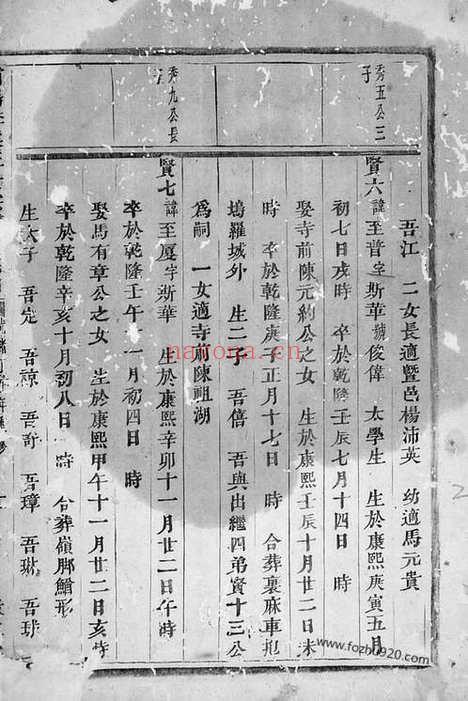 吾江 二女長適暨邑楊沛英 幼適馬元貴
秀五公三子
賢六諱至普字斯華號俊偉 太學生 生於康熙庚寅五月
初七日戌時 卒於乾隆壬辰七月十四日 時
娶寺前陳元約公之女 生於康熙壬辰十月廿二日未
時 卒於乾隆庚子正月十七日 時 合葬裏麻車抱
塢羅城外 生二子 吾僖 吾與出繼四弟賢十三公
為嗣 一女適寺前陳祖湖
秀九公長
賢七諱至厦字斯華 生於康熙辛卯十一月廿二日午時
卒於乾隆壬午十一月初四日 時
娶馬有章公之女 生於康熙甲午十一月廿二日亥時
卒於乾隆辛亥十月初八日 時 合葬嶺脚鰌形
生六子 吾定 吾諒 吾奇 吾璋 吾琳 吾球
narona.cn
www.fozhu920.com